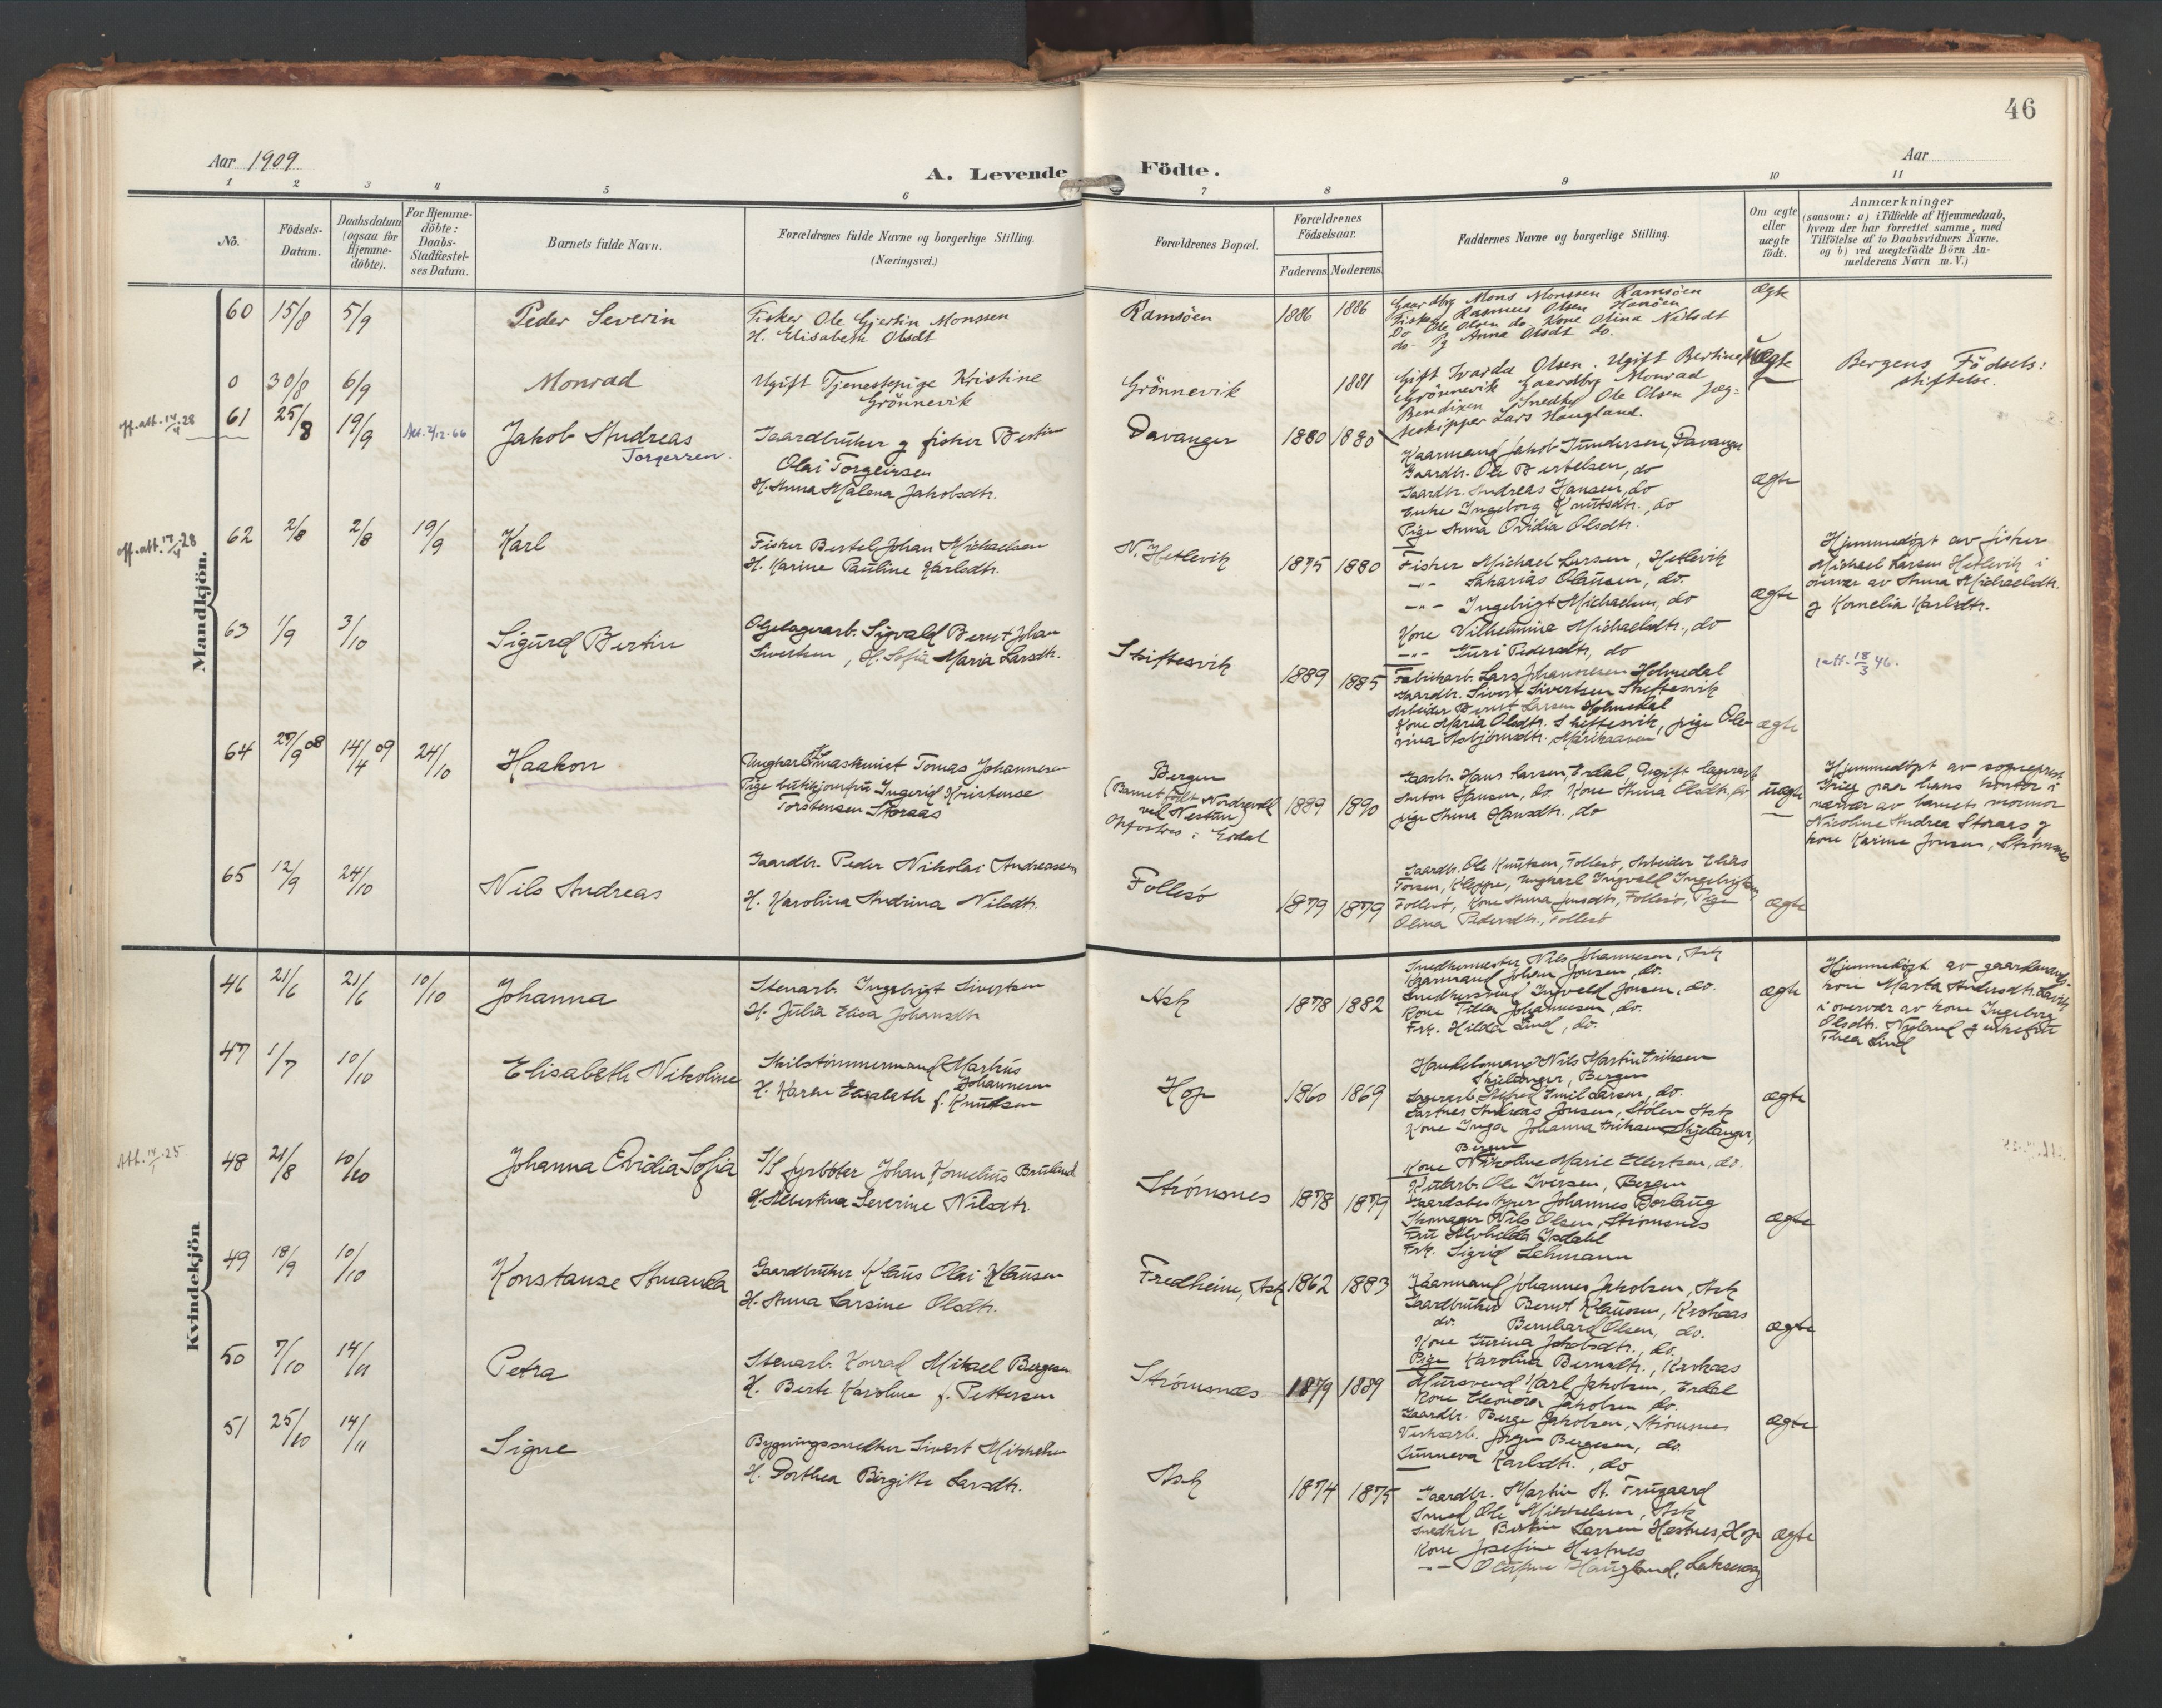 46
Aar 1909
Aar
A. Levende Födte.
1 2 3 4 5 6 7 8 9 10 11
No.
Födsels-Datum.
Daabsdatum (ogsaa for Hjemme-döbte).
For Hjemme-döbte: Daabs-Stadfæstel-ses Datum.
Barnets fulde Navn.
Forældrenes fulde Navne og borgerlige Stilling.
(Næringsvei.)
Forældrenes Bopæl.
Forældrenes Födselsaar.
Faderens. Moderens.
Faddernes Navne og borgerlige Stilling.
Om ægte eller uægte födt.
Anmærkninger
(saasom: a) i Tilfælde af Hjemmedaab,
hvem der har forrettet samme, med
Tilföielse af to Daabsvidners Navne,
og b) ved uægtefödte Börn An-
melderens Navn m. V.)
Mandkjön.
60 15/8 5/9 Peder Severin
Fisker Ole Gjertin Monssen
H. Elisabeth Olsdt
Ramsöen 1886 1886
Gaardbrg Mons Monssen Ramsöen
Fisker Rasmus Olsen Hanöen
Do Ole Olsen do. Kone Olina Nilsdt
do - Pg Anna Olsdt do.
ægte
0 30/8 6/9 Monrad
Ugift Tjenestepige Kristine
Grönnevik
Grönnevik 1881
Gift Ivarda Olsen. Ugift Bertine
Grönnevik Gaardbrg Monrad
Bendixen Snedkr Ole Olsen Jæg-
teskipper Lars Haugland.
Uægte
Bergens Födsels:
stiftelse.
off. att. 14/4-28
61 25/8 19/9 Att. 2/12-66 Jakob Andreas
Torgersen.
Gaardbruker g fisker Bertin
Olai Torgeirsen
H. Anna Malena Jakobsdtr.
Davanger 1880 1880
Kaarmand Jakob Gundersen, Davanger
Gaardbr. Ole Bertelsen, do
Gaardbr. Andreas Hansen, do
Enke Ingeborg Knutsdtr., do
Pige Anna Ovidia Olsdtr.
ægte
off. att. 13/4-28
62 2/8 2/8 19/9 Karl
Fisker Bertel Johan Michaelsen
H. Karine Pauline Karlsdtr.
N. Hetlevik 1875 1880
Fisker Michael Larsen, Hetlevik
-"- Sakarias Olausen, do.
-"- Ingebrigt Michaelsen, do
Kone Vilhelmine Michaelsdtr., do
-"- Guri Pedersdtr, do
ægte
Hjemmedøpt av fisker
Michael Larsen Hetlevik i
overvær av Anna Michaelsdtr.
g Kornelia Karlsdtr.
63 1/9 3/10 Sigurd Bertin
Oljelagerarb. Sigvald Bernt Johan
Sivertsen, H. Sofia Maria Larsdtr.
Skiftesvik 1889 1885
Fabrikarb. Lars Johannesen Holmedal
Gaardbr. Sivert Sivertsen Skiftesvik
Arbeider Bernt Larsen Holmedal
Kone Maria Olsdtr. Skiftesvik, pige Ole-
vina Asbjørnsdtr.
ægte
1 att. 18/3 46.
64 27/9 08 14/4 09 24/10 Haakon
Ungkarl maskinist Tomas Johannesen
Pige Ingerid Kristense
Torstensen Storaas
Bergen
(Barnet født Nordrevoll
ved Nesttun)
Opfostres i Erdal
1889 1890
Gaardbr. Hans Larsen, Erdal, Ugift lagerarb.
Anton Hansen, do. Kone Anna Olsdtr, do
pige Anna Hansdtr., do
uægte
Hjemmedøpt av sogneprest
Krieg paa hans kontor i
nærvær av barnets mormor
Nicoline Andrea Storaas g
kone Karine Jonsen, Strømsnes
65 12/9 24/10 Nils Andreas
Gaardbr. Peder Nikolai Andreassen
H. Karolina Andrina Nilsdtr.
Follesø 1879 1879
Gaardbr. Ole Knutsen, Follesø, Arbeider Elias
Torsen, Kleppe, Ungkarl Ingvald Ingebrigtsen
Follesø, Kone Anna Jensdtr, Follesø, Pige
Olina Pedersdtr., Follesø
ægte
Kvindekjön
46 21/6 21/6 10/10 Johanna
Stenarb. Ingebrigt Sivertsen
H. Julia Elisa Johansdtr
Ask 1878 1882
Snedkermester Nils Johannesen, Ask
Kaarmand Johan Jonsen, do.
Snedkersvend Ingvald Jonsen, do.
Kone Tilla Johannesen, do.
Frk. Hilda Lind, do.
ægte
Hjemmedøpt av gaardmands-
kone Marta Andersdtr.
i overvær av kone Ingeborg
Olsdtr. Nyland g enkefru
Thea Lind
47 1/7 10/10 Elisabeth Nikoline
Skibstømmermand Markus
Johannesen
H. Karen Elisabeth f. Knutsen
Hop 1860 1869
Handelsmand Nils Martin Eriksen
Skjelanger, Bergen
Lagerarb. Alfred Emil Larsen, do.
Gartner Andreas Jonsen, Stølen Ask
Kone Inga Johanna Eriksen Skjelanger,
Bergen
Kone Nikoline Marie Ellertsen, do.
ægte
Att. 14/1-25
48 21/8 10/10 Johanna Ovidia Sofia
S/S fyrbøter Johan Kornelius Bruland
H. Albertina Severine Nilsdtr.
Strømsnes 1878 1879
Kularb. Ole Iversen, Bergen
Gaardsbestyrer Johannes Borlaug
Skomager Nils Olsen, Strømsnes
Fru Alvhilda Isdahl
Frk. Sigrid Lehmann
ægte
49 18/9 10/10 Konstanse Amanda
Gaardbruker Klaus Olai Klausen
H. Anna Larsine Olsdtr.
Fredheim, Ask 1862 1883
Kaarmand Johannes Jakobsen, Ask
Gaardbruker Bernt Klausen, Krokaas
do. Bernhard Olsen, do.
Kone Gurina Jakobsdtr., do.
Pige Karolina Berntsdtr., Krokaas
ægte
50 7/10 14/11 Petra
Stenarb. Konrad Mikael Bergesen
H. Berte Karoline f. Pettersen
Strømsnes 1879 1889
Mursvend Karl Jakobsen, Erdal
Kone Eleonora Jakobsen do.
Gaardbr. Berge Jakobsen, Strømsnes
Verksarb. Jørgen Bergesen, do.
Sunneva Karlsdtr., do
ægte
51 25/10 14/11 Signe
Bygningssnedker Sivert Mikkelsen
H. Dorthea Birgitte Larsdtr.
Ask 1874 1875
Gaardbr. Martin A. Frugaard
Smed Ole Mikkelsen, Ask
Snedker Bertin Larsen Hestnes, Hop
Kone Josefine Hestnes
-"- Haugland, Laksevaag
ægte